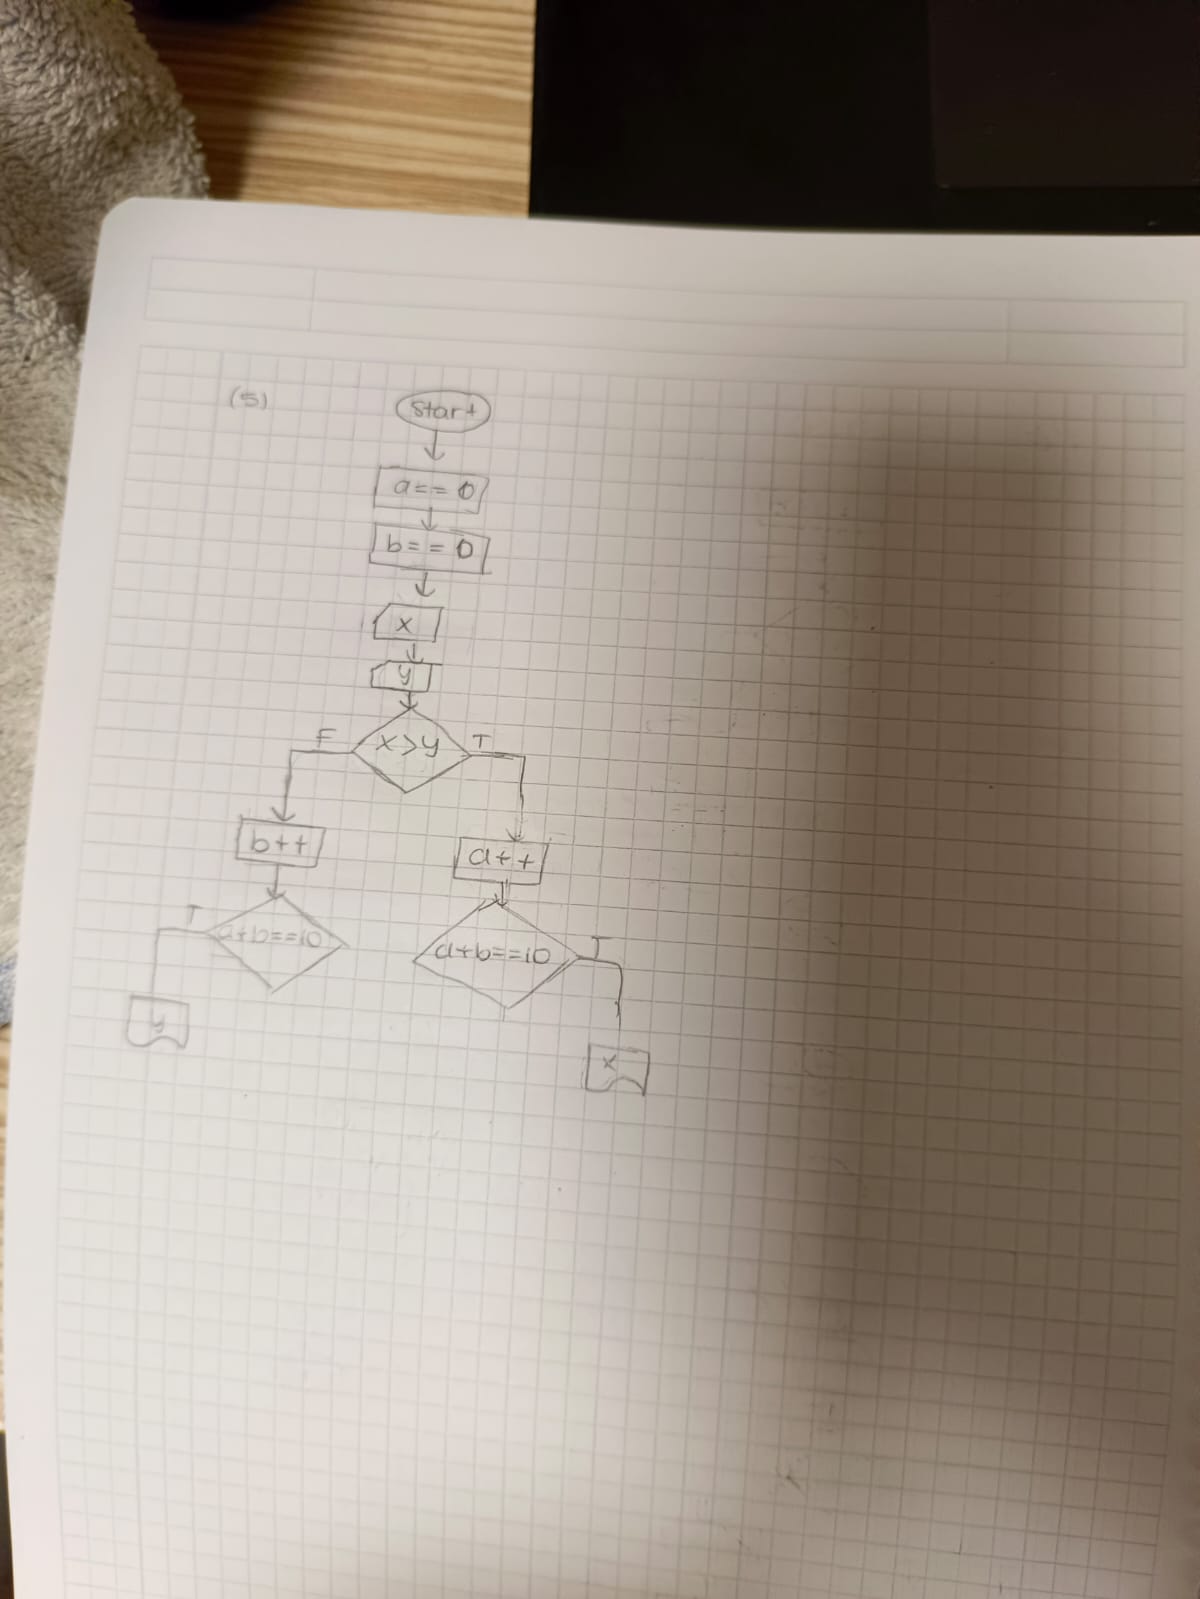 (5)
Start
a==0
b==0
x
y
F
x>y
T
b++
a++
T
a+b==10
a+b==10
T
y
x